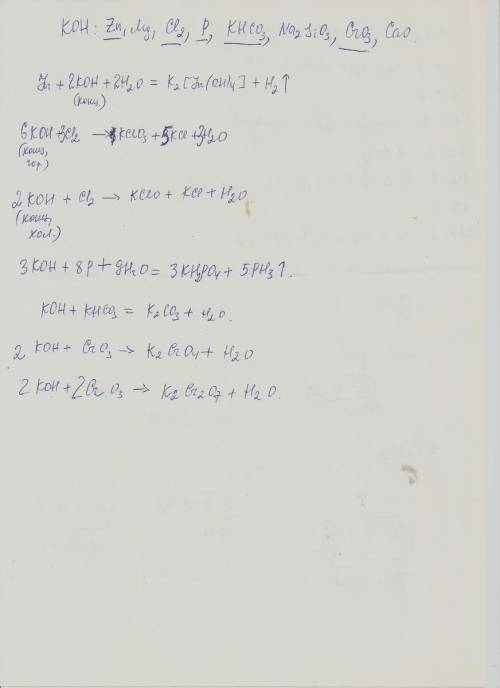 KOH: Zn, Mg, Cl2, P, KHCO3, Na2SiO3, CrO3, CaO.
Zn + 2KOH + 2H2O = K2[Zn(OH)4] + H2↑
(конц)
6KOH + 3Cl2 → KClO3 + 5KCl + 3H2O
(конц,
гор.)
2KOH + Cl2 → KClO + KCl + H2O
(конц,
хол.)
3KOH + 8P + 9H2O = 3KH2PO4 + 5PH3↑.
KOH + KHCO3 = K2CO3 + H2O.
2 KOH + CrO3 → K2CrO4 + H2O
2 KOH + 2CrO3 → K2Cr2O7 + H2O.